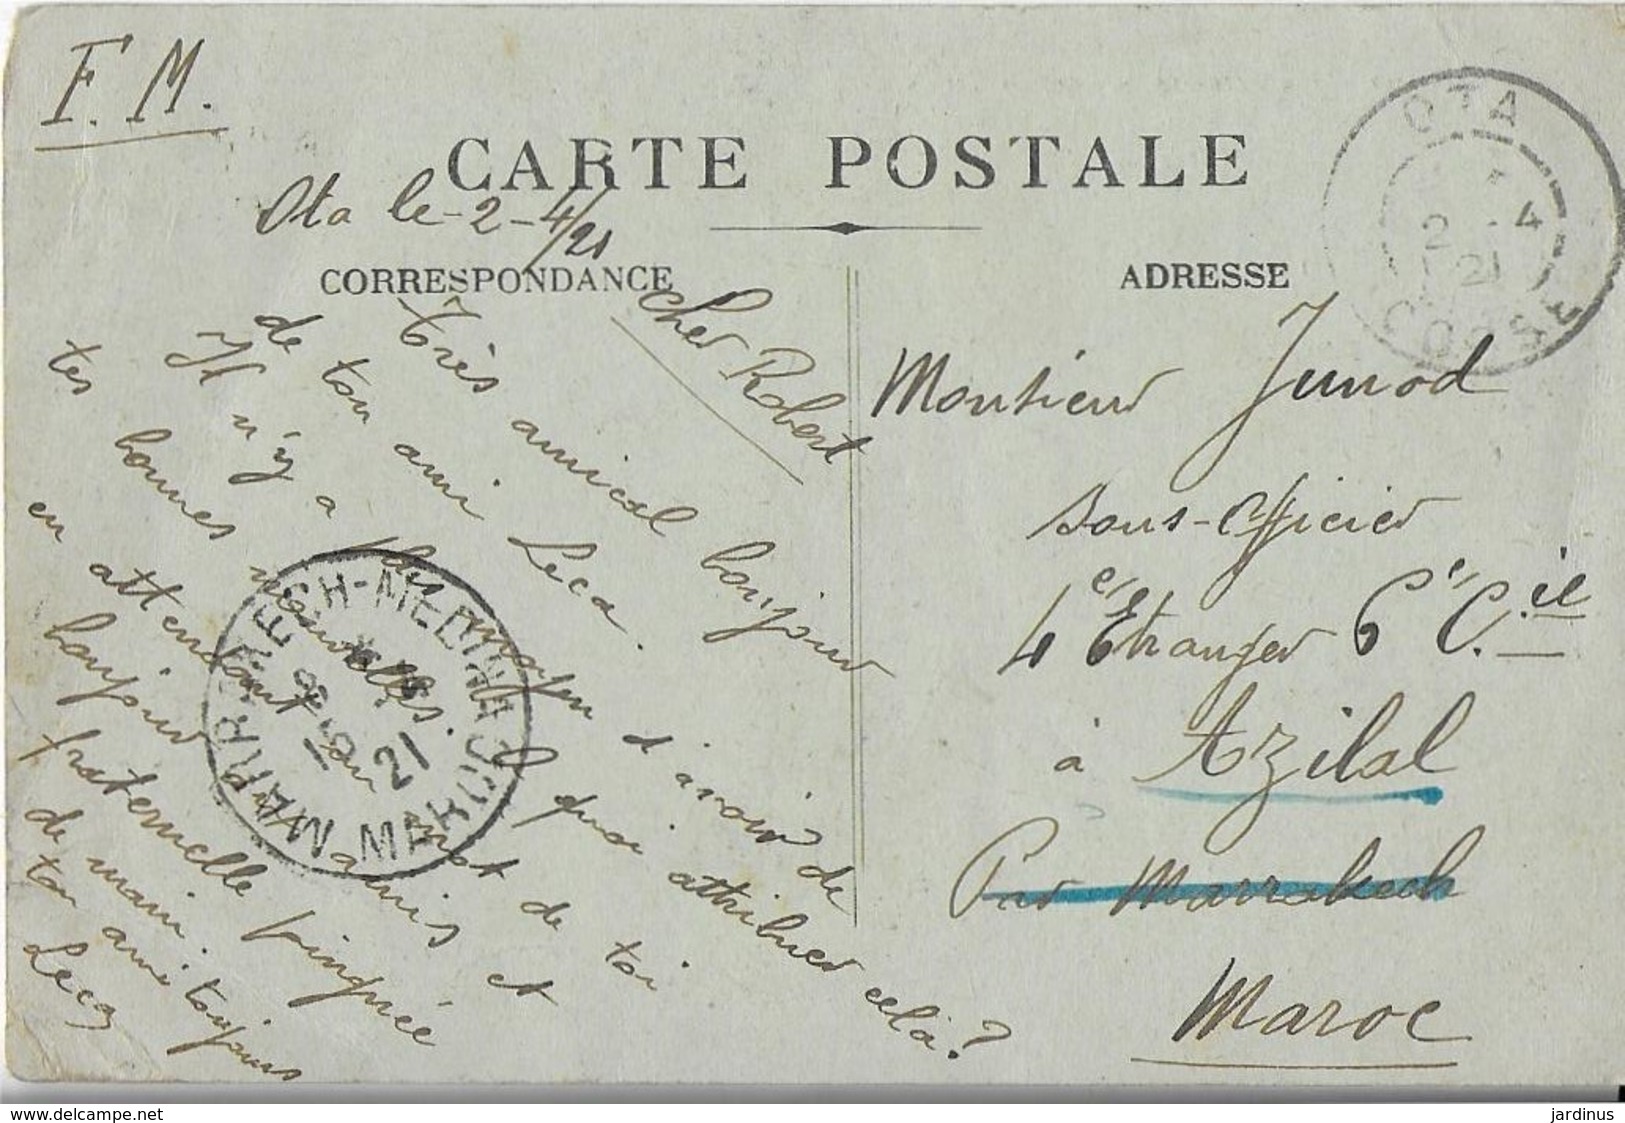 F. M.
CARTE POSTALE
Ota le - 2 - 4/21
CORRESPONDANCE
ADRESSE
OTA
2 - 4
21
CORSE
Cher Robert
Très amical bonjour
de ton ami Leca.
Il n'y a plus moyen d'avoir de
tes bonnes nouvelles. A quoi attribuer cela?
en attendant un mot de toi
bonjour aux amis et
fraternelle poignée
de main.
ton ami toujours
Leca
MARRAKECH-MEDINA
21
MAROC
Monsieur Junod
Sous-Officier
4e Etranger 6e C.ie
à Azilal
Par Marrakech
Maroc
www.delcampe.net
jardinus